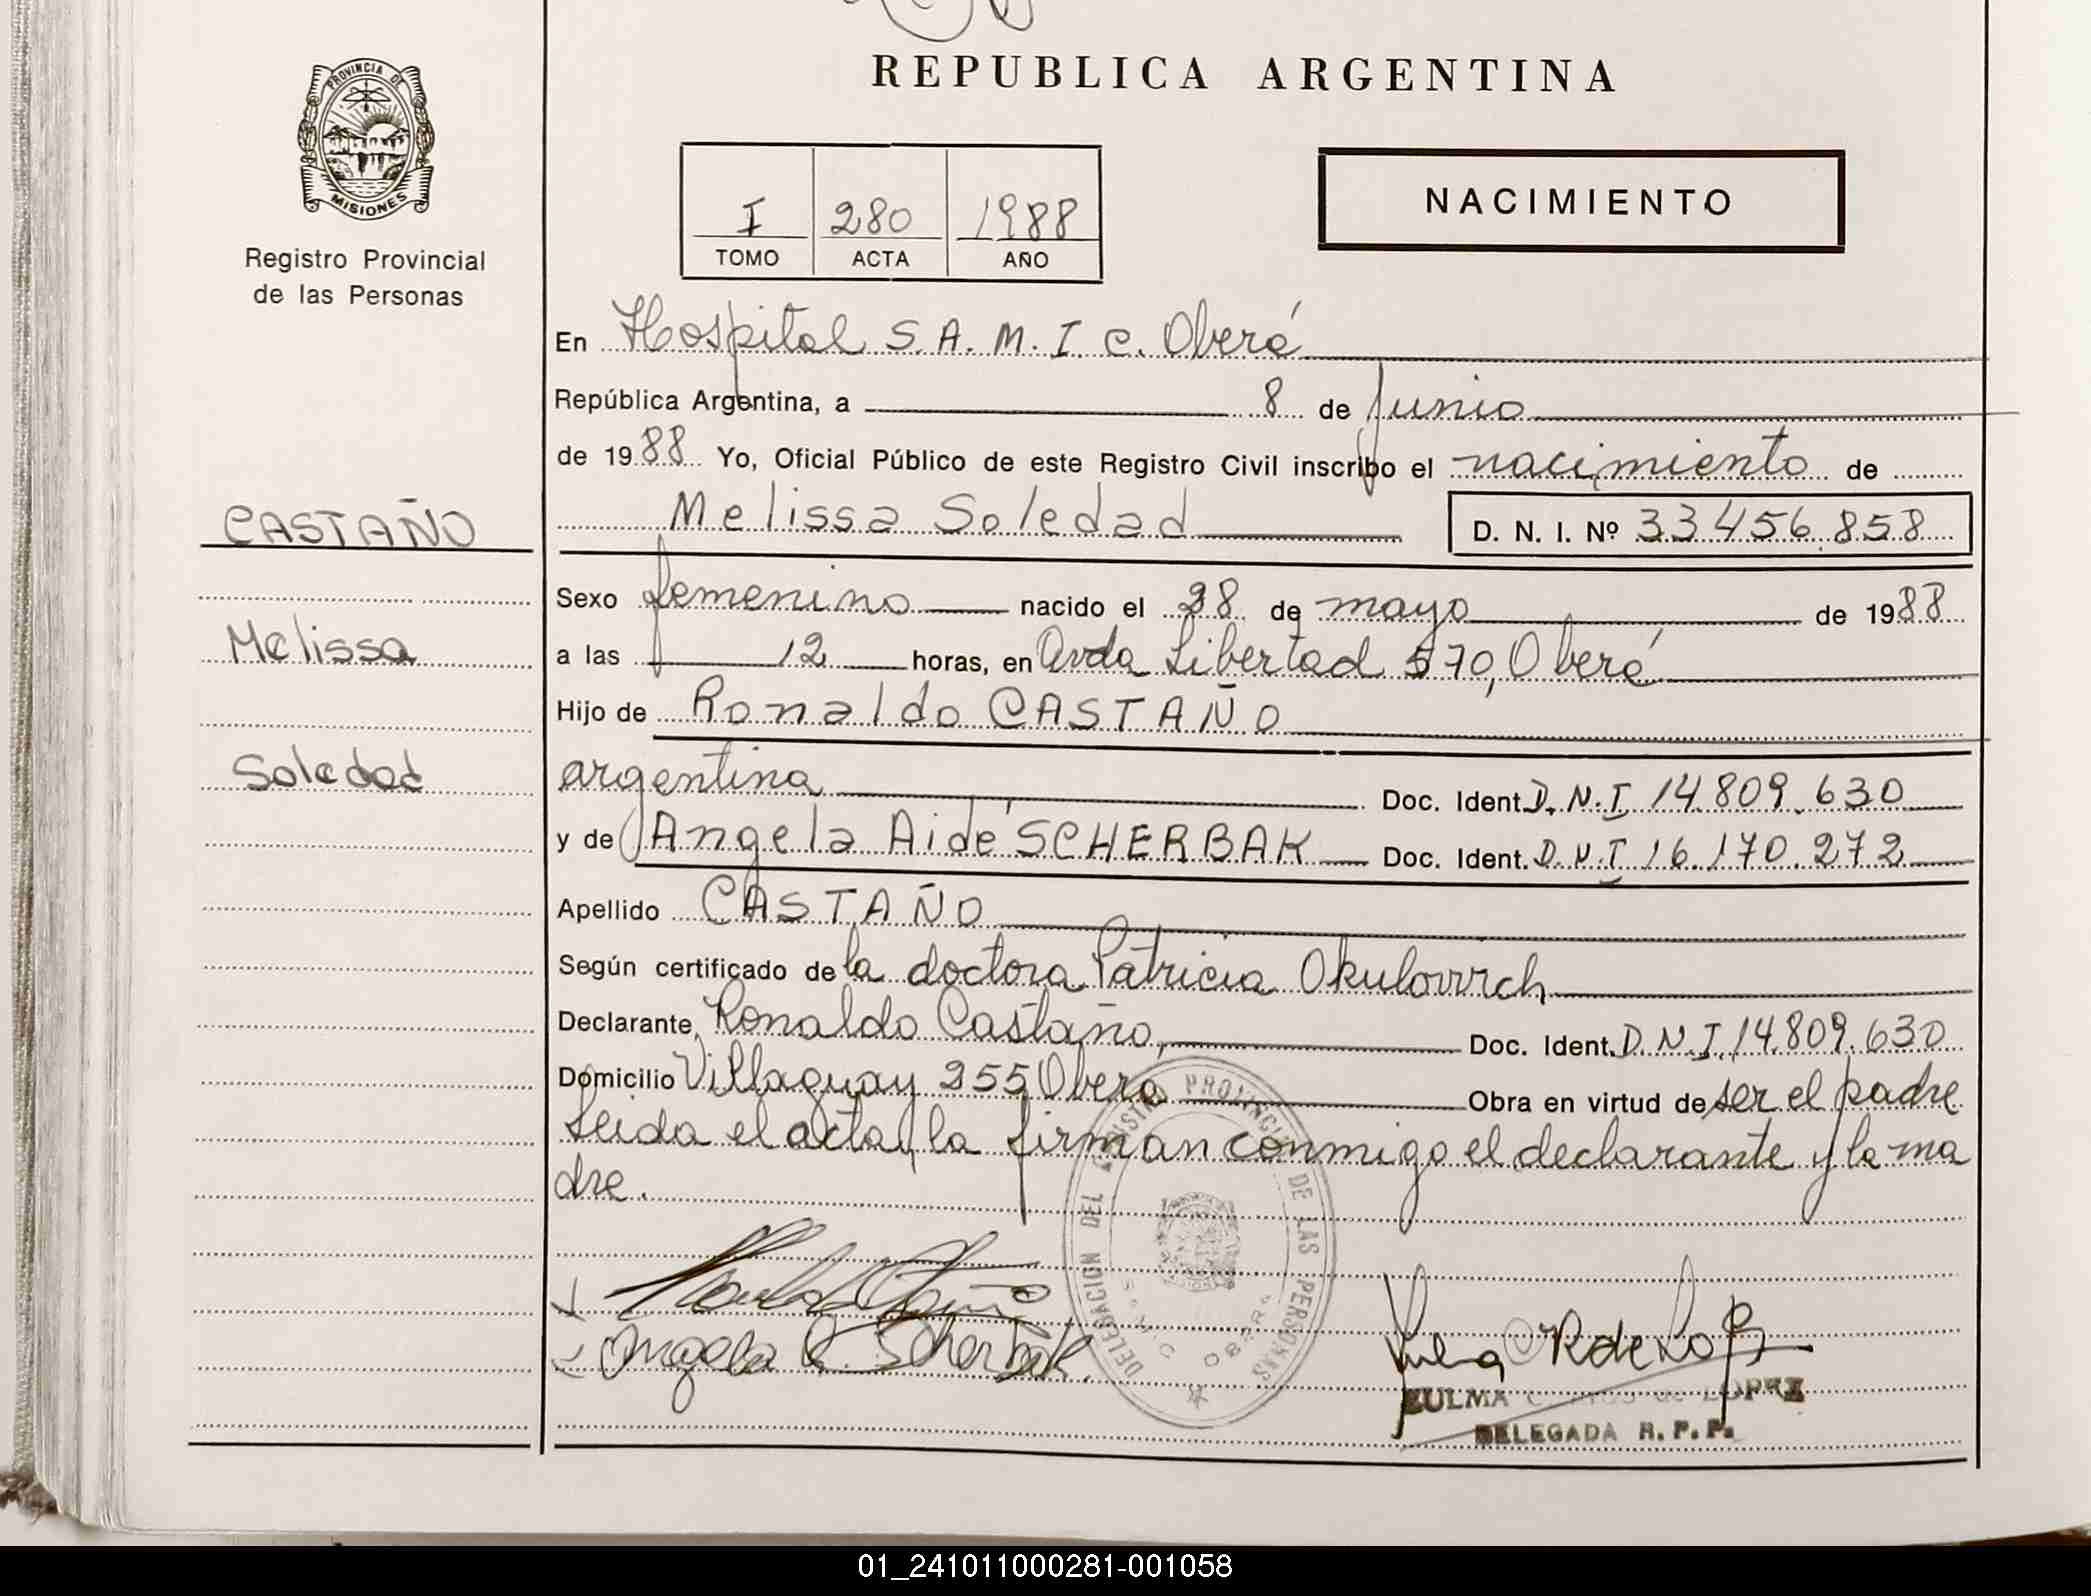 REPUBLICA ARGENTINA
PROVINCIA DE
MISIONES
Registro Provincial
de las Personas
I 280 1988
TOMO ACTA AÑO
NACIMIENTO
En Hospital S.A.M.I.C. Oberá
República Argentina, a 8 de Junio
de 1988 Yo, Oficial Público de este Registro Civil inscribo el nacimiento de
Melissa Soledad D. N. I. Nº 33.456.858
CASTAÑO
Melissa
Soledad
Sexo femenino nacido el 28 de mayo de 1988
a las 12 horas, en Avda Libertad 570, Oberá
Hijo de Ronaldo CASTAÑO
argentina Doc. Ident. D.N.I 14.809.630
y de Angela Aidé SCHERBAK Doc. Ident. D.N.I 16.170.272
Apellido CASTAÑO
Según certificado de la doctora Patricia
Declarante Ronaldo Castaño, Doc. Ident. D.N.I. 14.809.630
Domicilio Villaguay 255 Obera Obra en virtud de ser el padre
Leida el acta, la firman conmigo el declarante y la ma
dre.
DELEGACION DEL REGISTRO PROVINCIAL DE LAS PERSONAS
SAMIC OBERA
Angela Scherbak
ZULMA de LOPEZ
DELEGADA R. P. P.
01_241011000281-001058